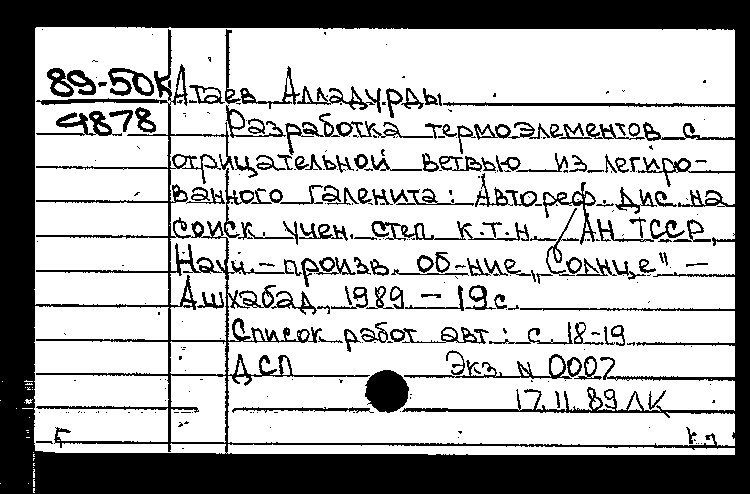 89-50к Атаев, Алладурды.
4878 Разработка термоэлементов с
отрицательной ветвью из легиро-
ванного галенита: Автореф. дис. на
соиск. учен. степ. к.т.н. / АН ТССР,
Науч.-произв. об-ние „Солнце". –
Ашхабад, 1989. – 19 с.
Список работ авт.: с. 18-19
ДСП Экз. N 0007
17.11.89 ЛК